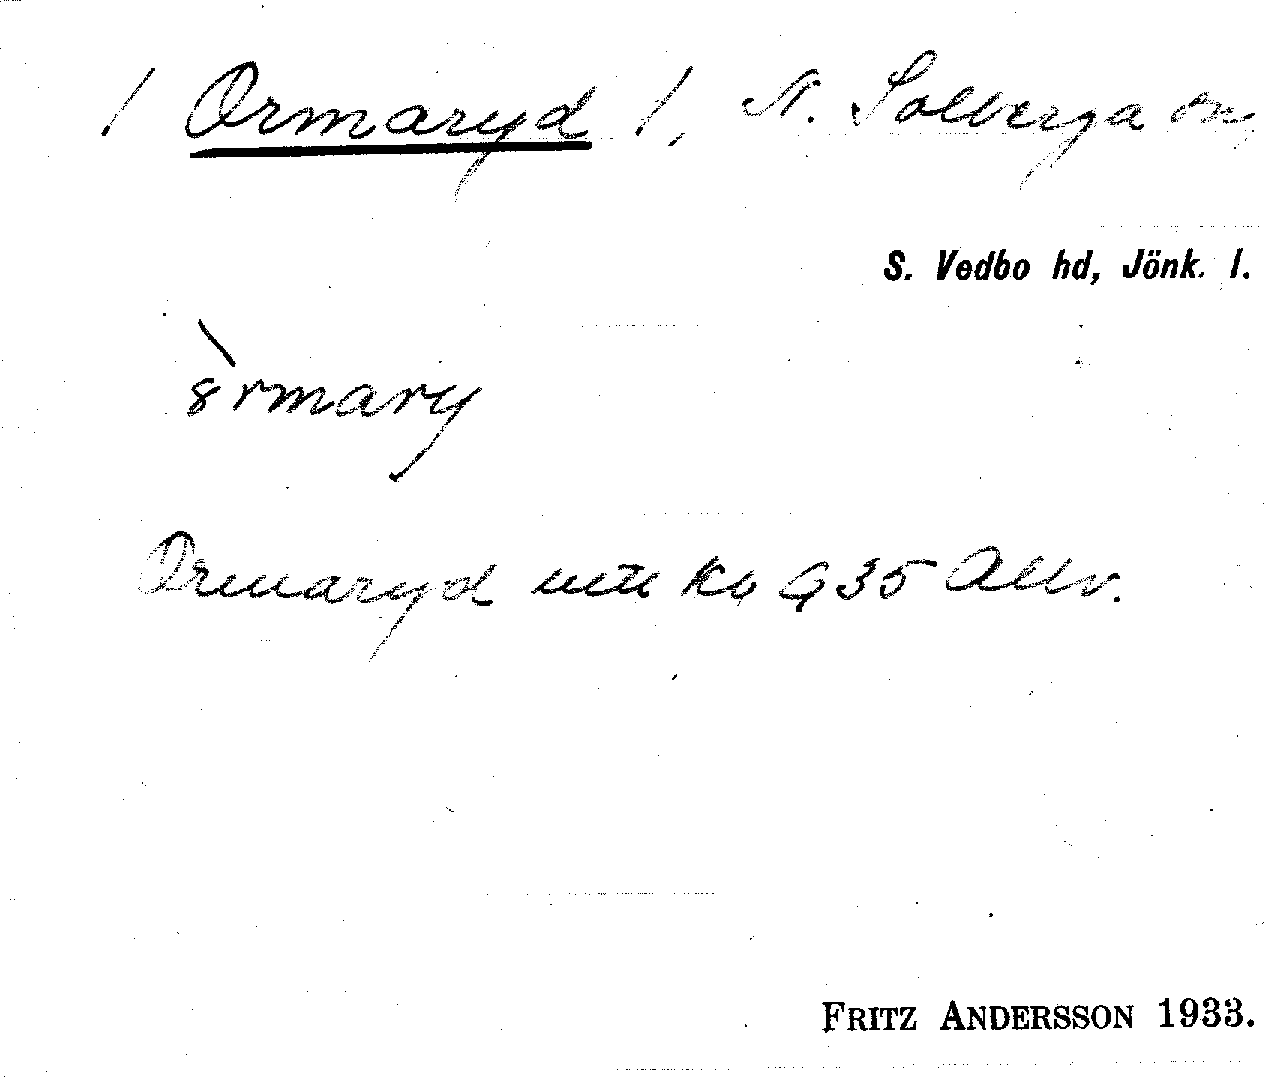 / Ormaryd /, N. Solberga sn,
S. Vedbo hd, Jönk. l.
ormary
Ormaryd Kb G35 Allv.
FRITZ ANDERSSON 1933.